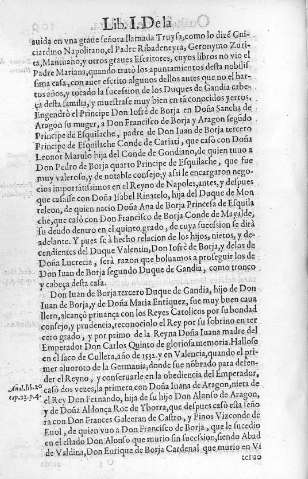 Lib. I. De la
auida en vna graue señora llamada Truysa, como lo dizē Gui-
ciardino Napolitano, el Padre Ribadeneyra, Geronymo Zuri-
ta, Manuiano, y otros graues Escritores, cuyos libros no vio el
Padre Mariana, quando trato los apuntamientos desta nobilis-
sima casa, con auer escrito algunos dellos antes que no el har-
tos años, y tocado la sucesion de los Duques de Gandia cabe-
ça desta familia, y muestrase muy bien en tā conocidos yerros.
Engendrò el Principe Don Iofrè de Borja en Doña Sancha de
Aragon su muger, a Don Francisco de Borja y Aragon segūdo
Principe de Esquilache, padre de Don Iuan de Borja tercero
Principe de Esquilache Conde de Cariati, que casò con Doña
Leonor Marulo hija del Conde de Condiano, de quien tuuo a
Don Pedro de Borja quarto Principe de Esquilache, que fue
muy valeroso, y de notable consejo, y assi le encargaron nego-
cios importātissimos en el Reyno de Napoles, antes, y despues
que casasse con Doña Isabel Picatelo, hija del Duque de Mon
releon, de quien nacio Doña Ana de Borja Princesa de Esquila
che, que casò con Don Francisco de Borja Conde de Mayalde,
su deudo dentro en el quinto grado, de cuya sucession se dirà
adelante. Y pues se à hecho relacion de los hijos, nietos, y de-
cendientes del Duque Valentin, Don Iofrè de Borja, y de las de
Doña Lucrecia, serà razon que boluamos a proseguir los de
Don Iuan de Borja segundo Duque de Gandia, como tronco
y cabeça desta casa.
Don Iuan de Borja tercero Duque de Gandia, hijo de Don
Iuan de Borja, y de Doña Maria Enriquez, fue muy buen caua
llero, alcançò priuança con los Reyes Catolicos por su bondad
consejo, y prudencia, reconociolo el Rey por su sobrino en ter
cero grado, y por primo de la Reyna Doña Iuana madre del
Emperador Don Carlos Quinto de gloriosa memoria. Hallose
en el saco de Cullera, año de 1532. y en Valencia, quando el pri
mer aluoroto de la Germania, donde fue nōbrado para defen-
der el Reyno, y conseruarle en la obediencia del Emperador,
casò dos vezes, la primera con Doña Iuana de Aragon, nieta de
el Rey Don Fernando, hija de su hijo Don Alonso de Aragon,
y de Doña Aldonça Roc de Yborra, que despues casò esta seño
ra con Don Frances Galceran de Castro, y Pinos Vizconde de
Euol, de quien vuo a Don Francisco de Borja, que le sucediò
en el estado Don Alonso que murio sin sucession, siendo Abad
de Valdina, Don Enrique de Borja Cardenal que murio en Vi
terbo
Añal. lib. 20
cap. 23. p. 4.